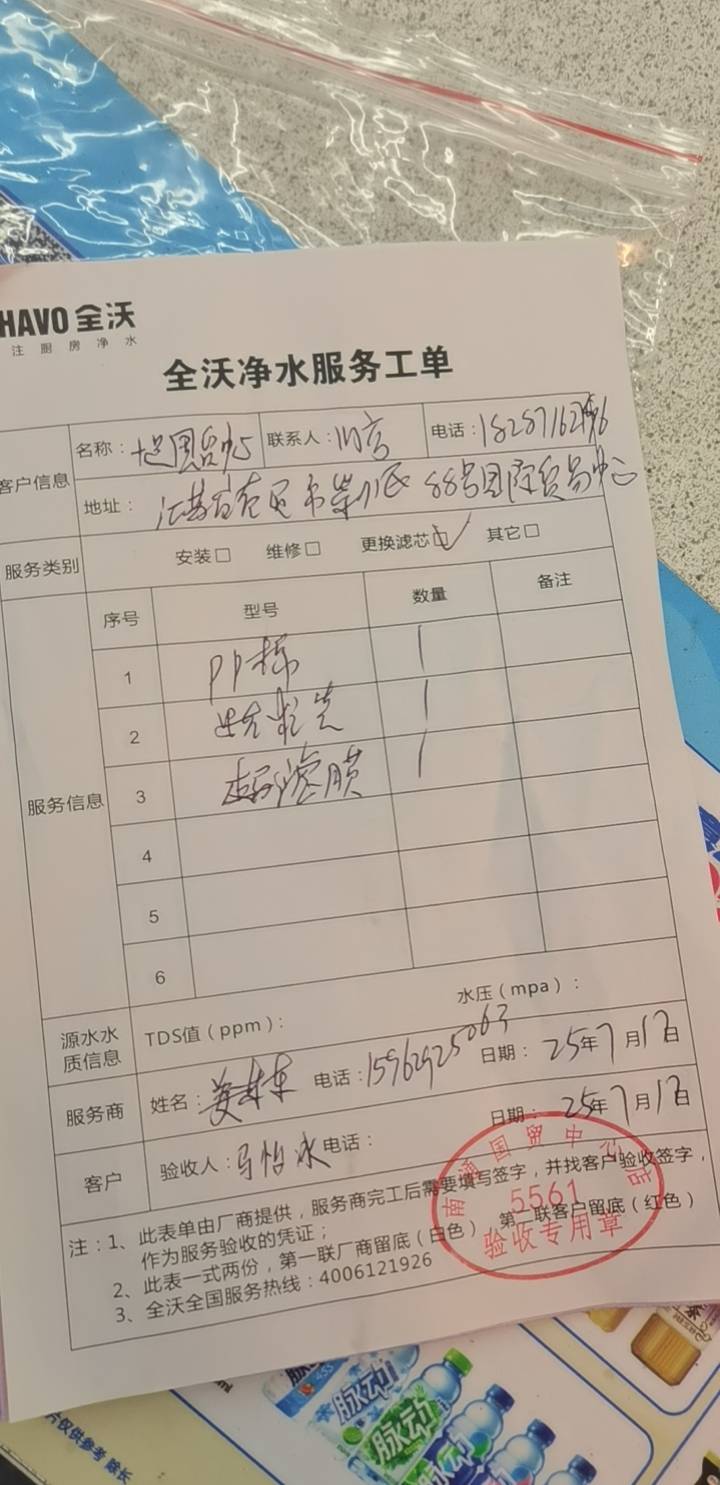 HAVO 全沃
注厨房净水
全沃净水服务工单
客户信息
名称： 联系人： 电话：
地址： 88号国际贸易中心
服务类别 安装□ 维修□ 更换滤芯□✓ 其它□
服务信息
序号 型号 数量 备注
1 PP棉 1
2 1
3 超滤膜 1
4
5
6
源水水质信息 TDS值（ppm）： 水压（mpa）：
服务商 姓名： 电话：15962925063 日期：25年7月17日
客户 验收人：马怡冰 电话： 日期：25年7月17日
注：1、此表单由厂商提供，服务商完工后需要填写签字，并找客户验收签字，
作为服务验收的凭证；
2、此表一式两份，第一联厂商留底（白色） 第二联客户留底（红色）
3、全沃全国服务热线：4006121926
国贸中心店
5561
验收专用章
脉动
脉动
片仅供参考 除长